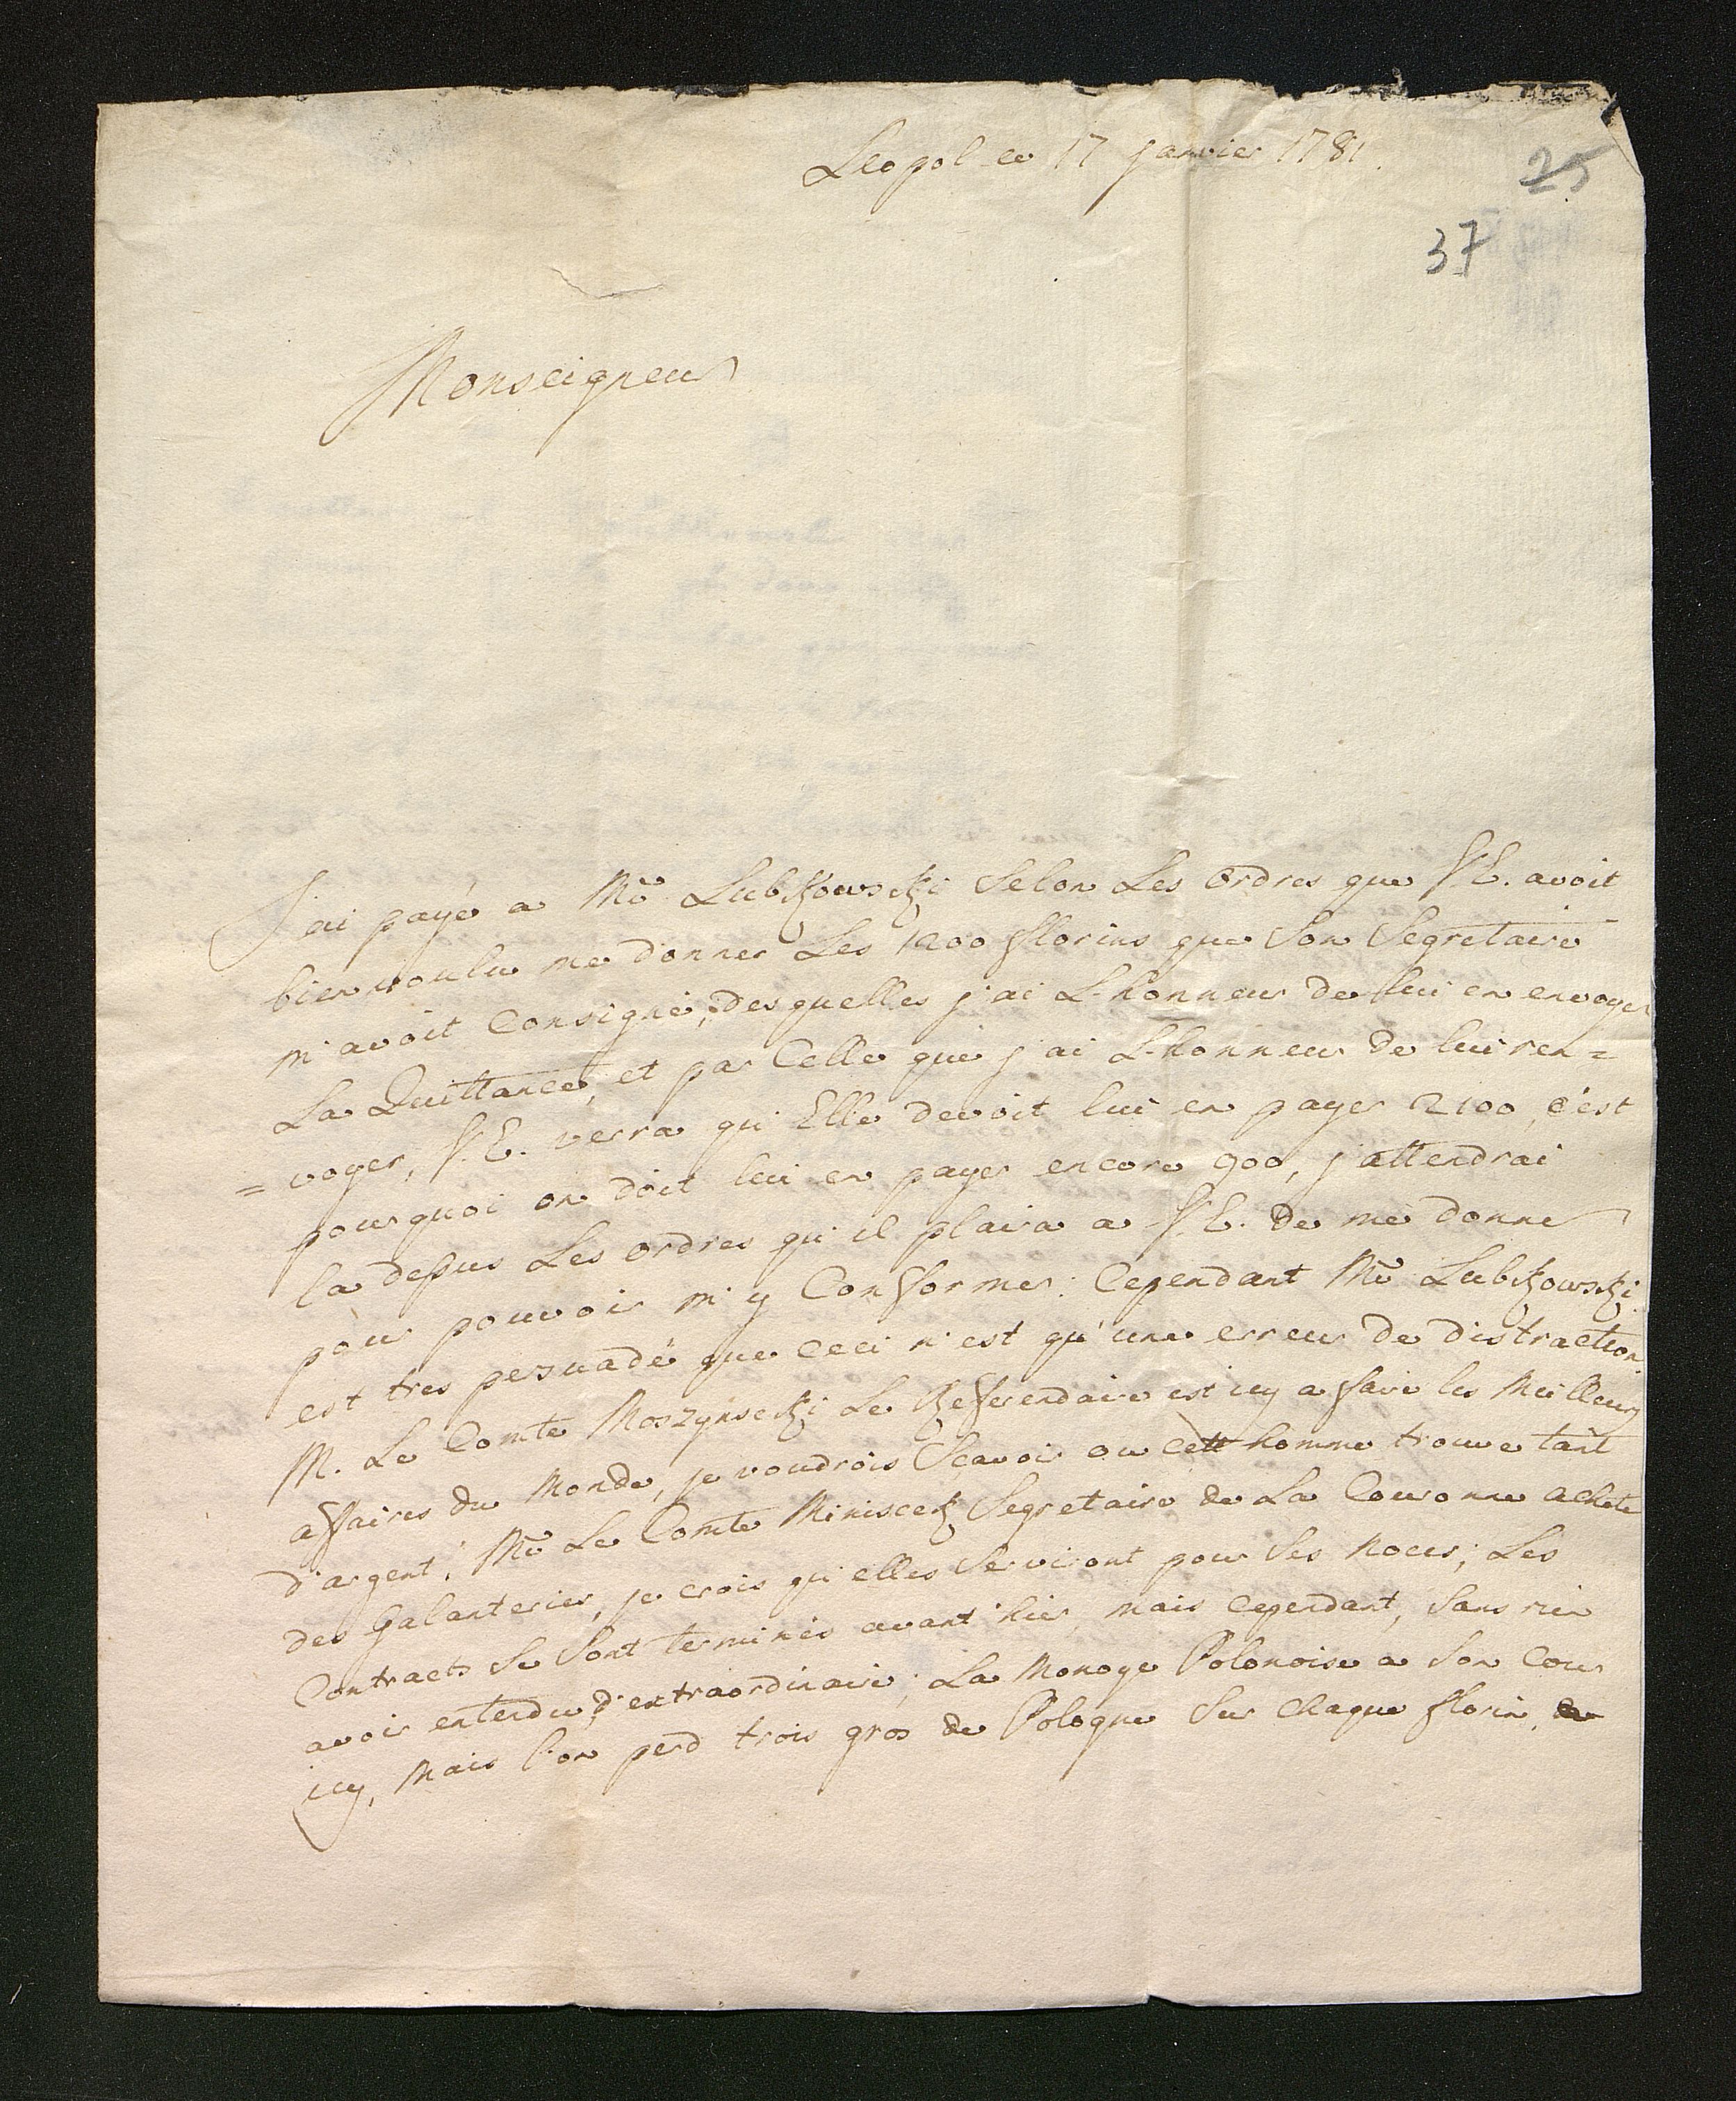 Leopol ce 17 janvier 1781.
25
37
Monseigneur
J'ai payé a Mr Lubkowski selon Les Ordres que V.E. avoit
bien voulu me donner Les 1200 florins que Son Segretaire
m'avoit Consigné, desquelles j'ai L'honneur de lui en envoyer
La Quittance, et par Celle que j'ai L'honneur de lui ren=
=voyer, V.E. verra qu'Elle devoit lui en payer 2100, c'est
pourquoi on doit lui en payer encore 900, j'attendrai
la dessus Les ordres qu'il plaira a V.E. de me donner
pour pouvoir m'y Conformer: Cependant Mr Lubkowski
est tres persuadé que Ceci n'est qu'une erreur de distraction
M. Le Comte Moszynscki Le Refferendaire est icy a faire les Meilleurs
affaires du Monde, je voudrois Scavoir ou cett homme trouve tant
d'argent! Mr Le Comte Miniscek Segretaire de La Couronne achete
des Galanteries, je crois qu'elles Serviront pour Ses Noces; Les
Contracts Se Sont terminés avant hier, mais Cependant, Sans rien
avoir entendu d'extraordinaire; La Monoye Polonoise a Son Cour
icy, Mais l'on perd trois gros de Pologne Sur Chaque florin,